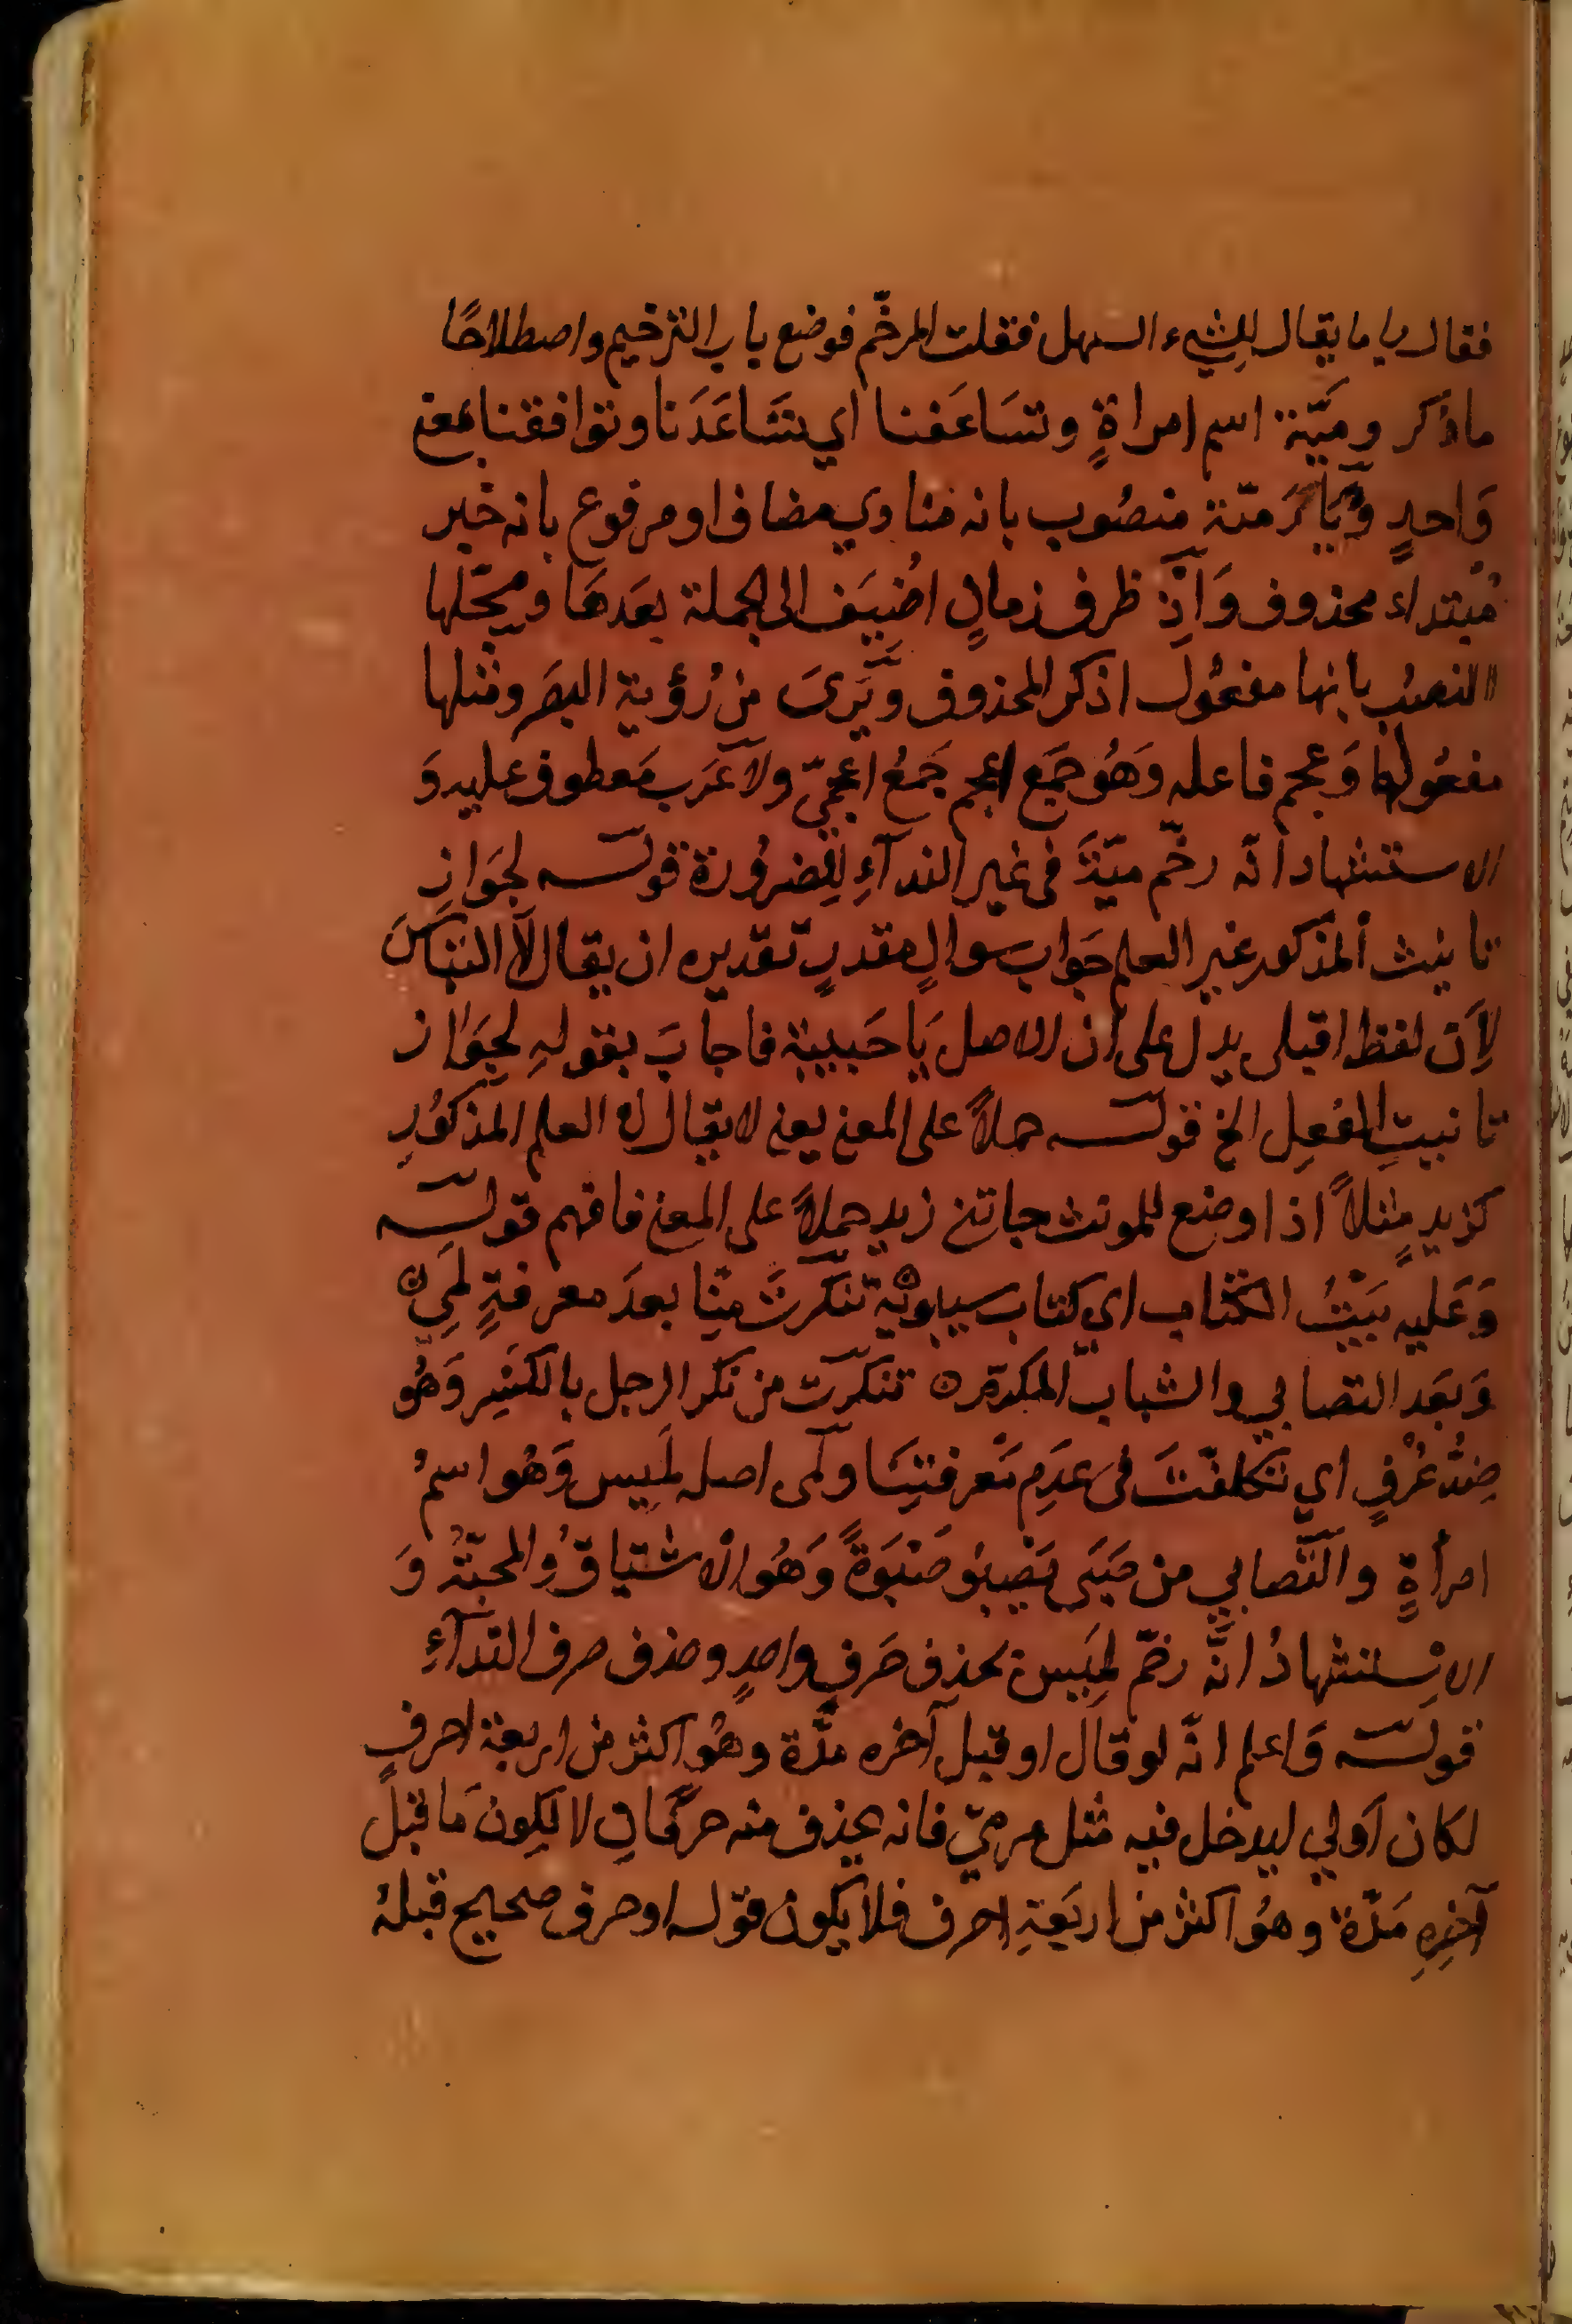 فقال لي ما يقال للشيء السهل فقلت المرخّم فوضع باب الترخيم واصطلاحًا
ما ذكر وميّة اسم امراةٍ وتسَاعَفنا اي تسَاعَدَنا وتوافقنا بمعنى
وَاحدٍ وديَارَ ميّة منصُوب بانه منادي مضاف او مرفوع بانه خبر
مبتداء محذوف وَاذ ظرف زمانٍ اضيَف الى الجملة بعَدهَا ومحّلها
النصبُ بانها مفعُول اذكر المحذوف ويَرىَ من رُؤية البصَر ومثلها
مفعُولها وَعجم فاعله وَهُو جَمَع اعجم جَمعُ اعجميّ ولا عَرَب مَعطوف عليه وَ
الاستشهاد انّه رخّم ميّةَ فى غير الندآءِ للِضرُورة قولـه لجَوازِ
تانيث المذكور غير العلم جَواب سوالٍ مقدرٍ تقديره ان يقال لا التباسَ
لاَن لفظ اقبلى يدل على ان الاصل يَا حَبيبة فاجابَ بقولهِ لجَوَاز
تانيثِ المفعِل الخ قولـه حملاً على المعنى يعنى لا يقال ان العلم المذكوُرِ
كزيدٍ مثلاً اذا وضع للمونث جاتني زيد حملاً على المعنى فافهم قولـه
وَعَليه بَيتُ الكتاب اي كتاب سيبويه تنكّرتَ منّا بعدَ معرفةٍ لَمِي
وَبعَد التصابي والشباب المكرّم تنكرّت من نكر الرجل بالكَسِر وَهُو
ضِدُّ عُرْفٍ اي تكلفّتَ فى عَدِم مَعرفتنِا ولمى اصله لَمِيس وَهُو اسمُ
امرأةٍ والتّصابي من صَبَى يَصْبوُ صَبَوَةً وَهُو الاشتياقُ والمحبّةُ وَ
الاِستشهادُ انّه رخّم لمِيَس بحذِف حَرفٍ واحدٍ وحذف حرف الندآءِ
قولـه وَاعلم انّه لو قال او قبل آخره مدّة وهُو اكثر من اربعة احرفٍ
لكان اَولي ليدخل فيه مثل مرميّ فانه يحذف منه حرفانِ لا يكِونُ مَا قبل
آخِرهِ مَدّة وهُو اكثر من اربَعةِ احرف فلا يكونُ قوله او حرف صحيح قبلهُ